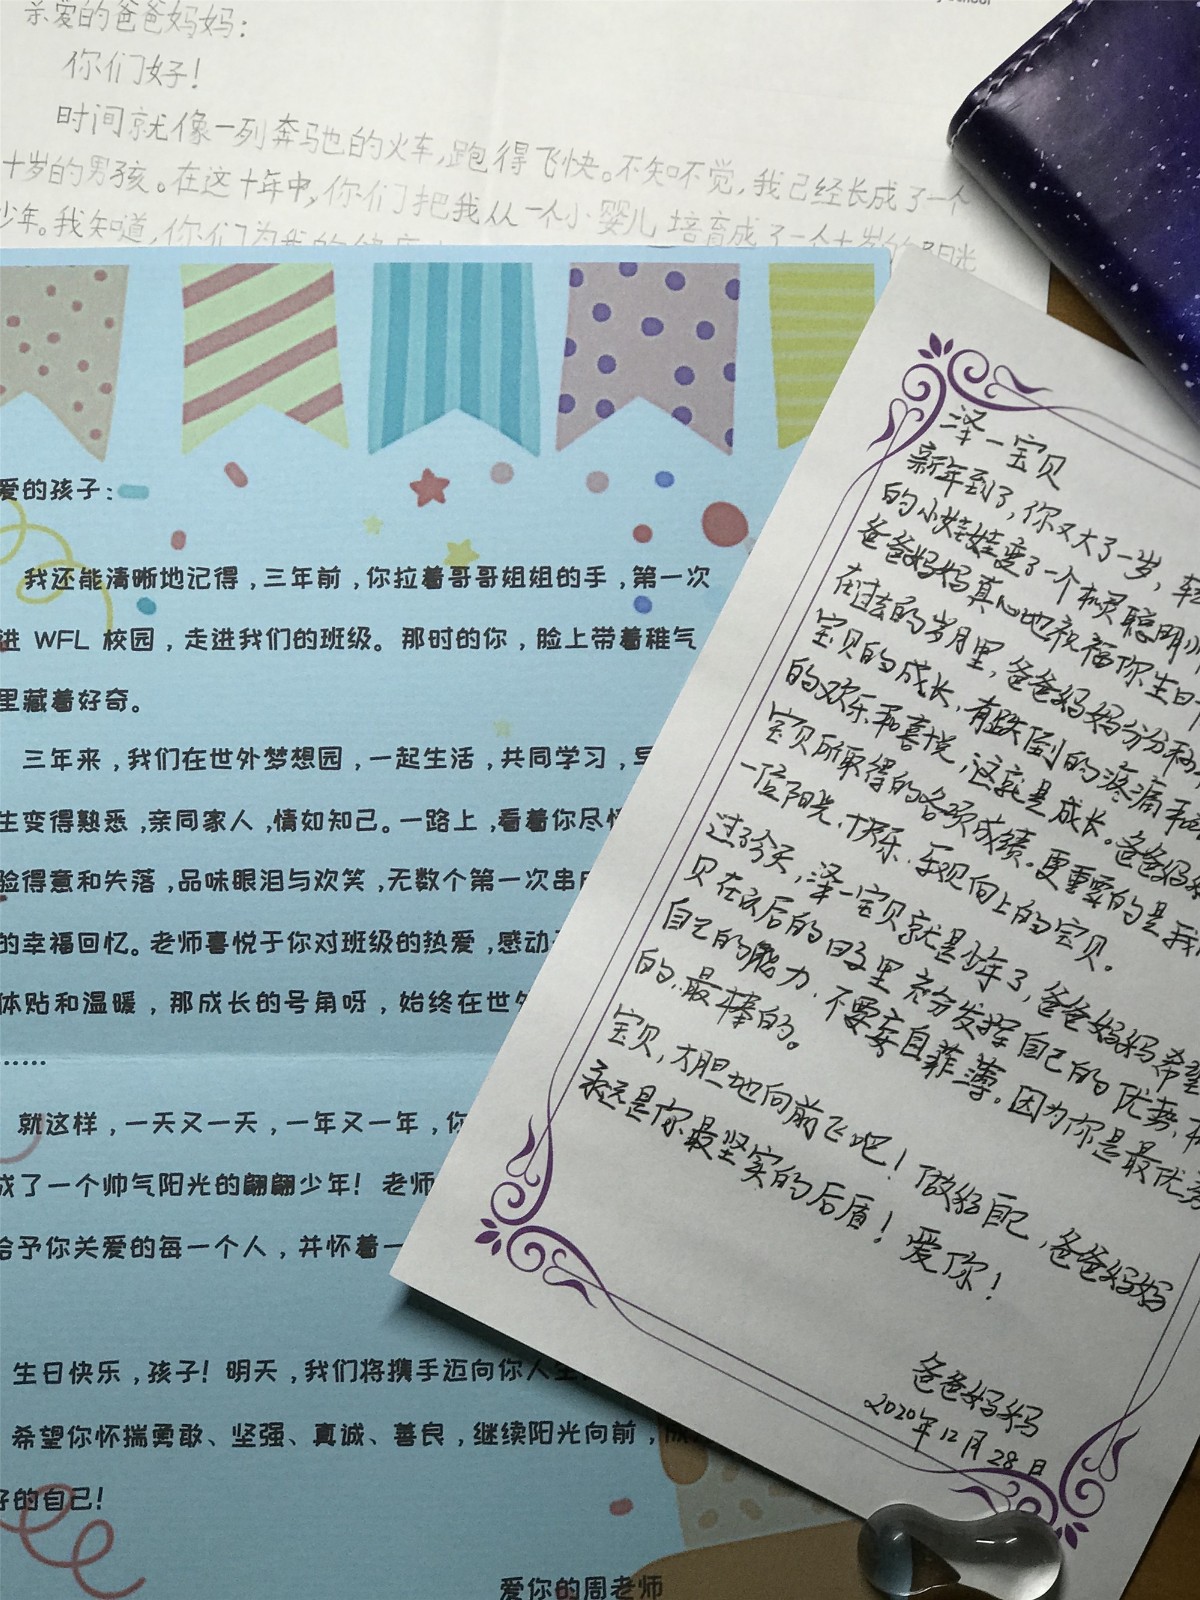 亲爱的爸爸妈妈:
你们好!
时间就像一列奔驰的火车,跑得飞快。不知不觉,我已经长成了一个
十岁的男孩。在这十年中,你们把我从一个小婴儿培育成了一个十岁的阳光
少年。我知道,你们为我的健康
爱的孩子:
我还能清晰地记得,三年前,你拉着哥哥姐姐的手,第一次
进 WFL 校园,走进我们的班级。那时的你,脸上带着稚气
里藏着好奇。
三年来,我们在世外梦想园,一起生活,共同学习,
生变得熟悉,亲同家人,情如知己。一路上,看着你尽
验得意和失落,品味眼泪与欢笑,无数个第一次串
的幸福回忆。老师喜悦于你对班级的热爱,感动
体贴和温暖,那成长的号角呀,始终在世外
……
就这样,一天又一天,一年又一年,你
成了一个帅气阳光的翩翩少年!老师
给予你关爱的每一个人,并怀着一
生日快乐,孩子!明天,我们将携手迈向你人生
希望你怀揣勇敢、坚强、真诚、善良,继续阳光向前,
好的自己!
爱你的周老师
泽一宝贝
新年到了,你又大了一岁,
的小娃娃变了一个机灵聪明
爸爸妈妈真心地祝福你生日
在过去的岁月里,爸爸妈妈分分秒
宝贝的成长,有跌倒的疼痛和
的欢乐和喜悦,这就是成长。爸爸妈妈
宝贝所取得的各项成绩。更重要的是我
一位阳光、快乐、乐观向上的宝贝。
过了今天,泽一宝贝就是少年了,爸爸妈妈希望
贝在以后的日子里充分发挥自己的优势,
自己的能力,不要妄自菲薄。因为你是最优秀
的,最棒的。
宝贝,大胆地向前飞吧!做好自己,爸爸妈妈
永远是你最坚实的后盾!爱你!
爸爸妈妈
2020年12月28日